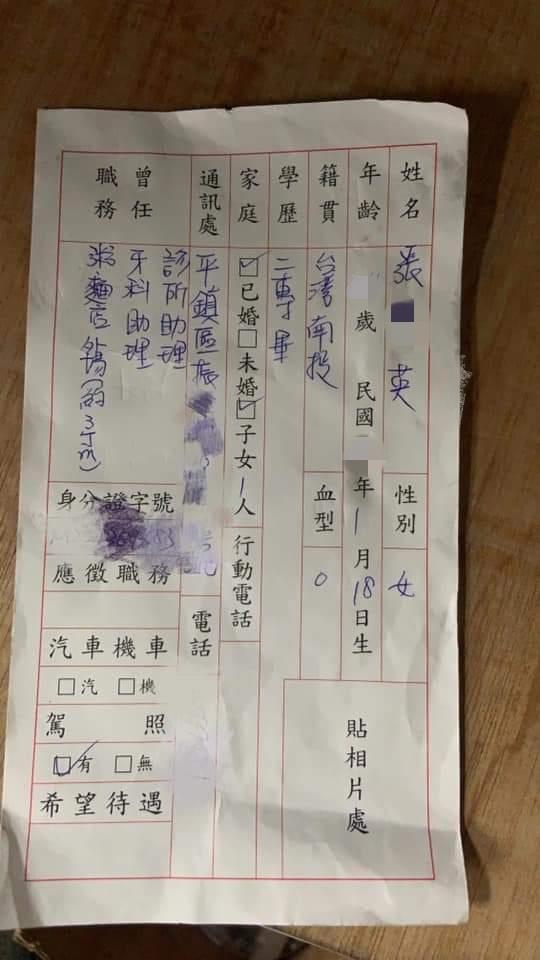 姓名 張 英 性別 女
年齡 歲 民國 年1月18日生
籍貫 台灣南投 血型 O
學歷 二專畢
貼相片處
家庭 ☑已婚☐未婚☑子女1人 行動電話
通訊處 平鎮區振 電話
曾任職務
診所助理
牙科助理
粥麵店
身分證字號
應徵職務
汽車機車
☐汽 ☐機
駕照
☑有 ☐無
希望待遇